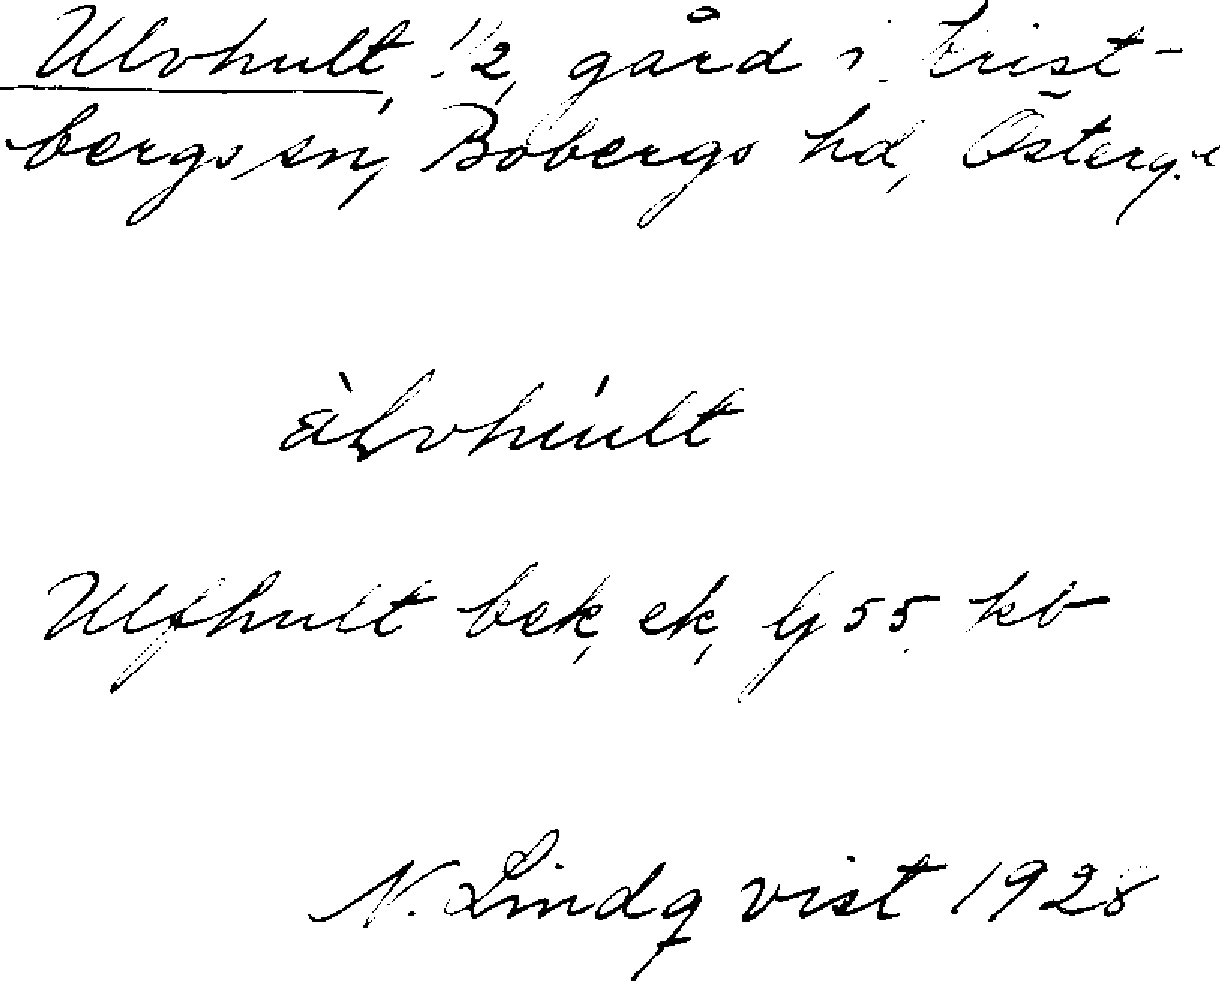 Ulvhult, 1/2, gård i Krist-
bergs sn, Bobergs hd, Österg.
àlvhúlt
Ulfhult bek, ek, Gj 55 kb
N. Lindqvist 1928